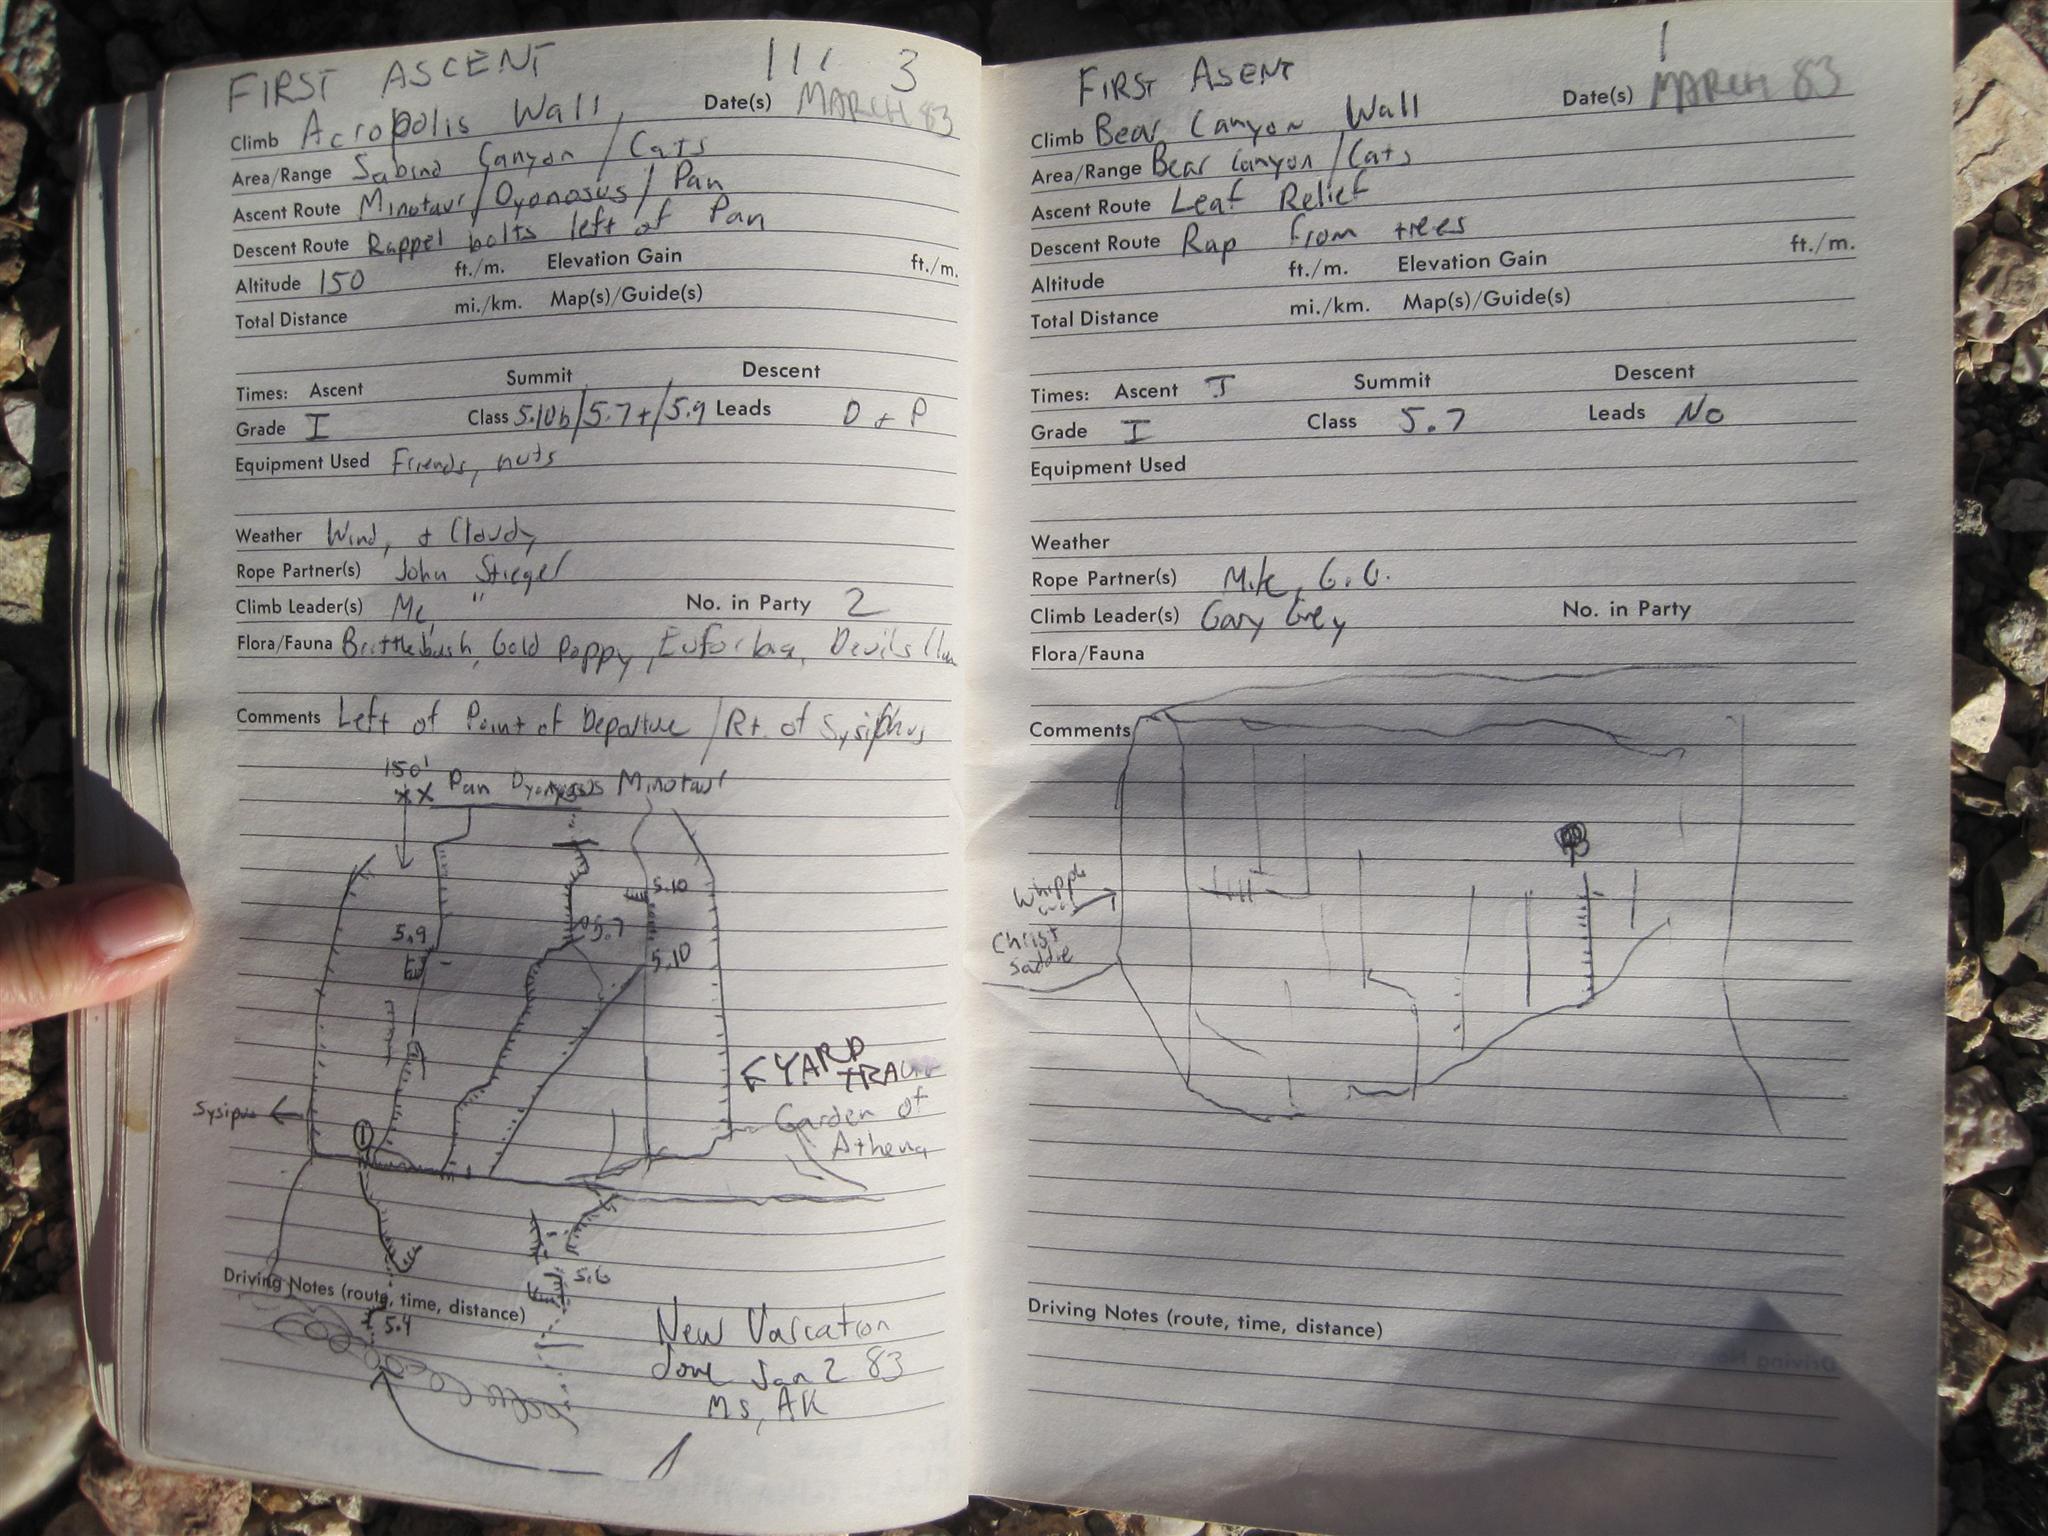 FIRST ASCENT 111 3
Climb Acropolis Wall, Date(s) MARCH 83
Area/Range Sabino Canyon / Cats
Ascent Route Minotaur/Dyonosus/Pan
Descent Route Rappel bolts left of Pan
Altitude 150 ft./m. Elevation Gain ft./m.
Total Distance mi./km. Map(s)/Guide(s)
Times: Ascent Summit Descent
Grade I Class 5.10b/5.7+/5.9 Leads D + P
Equipment Used Friends, nuts
Weather Wind, + Cloudy
Rope Partner(s) John Stiegel
Climb Leader(s) Me, " No. in Party 2
Flora/Fauna Brittlebush, Gold Poppy, Euforbia, Devils
Comments Left of Point of Departure / Rt. of Sysiphus
150' Pan Dyonosus Minotaur
XX
5.10
5.9 5.7
5.10
YARD
Garden of
Athena
Sysiphus
1
5.6
Driving Notes (route, time, distance)
5.4
New Variation
done Jan 2 83
MS, AK
1
FIRST ASENT 1
Climb Bear Canyon Wall Date(s) MARCH 83
Area/Range Bear Canyon/Cats
Ascent Route Leaf Relief
Descent Route Rap from trees
Altitude ft./m. Elevation Gain ft./m.
Total Distance mi./km. Map(s)/Guide(s)
Times: Ascent I Summit Descent
Grade I Class 5.7 Leads No
Equipment Used
Weather
Rope Partner(s) Mik, G.G.
Climb Leader(s) Gary Grey No. in Party
Flora/Fauna
Comments
Whipple
Christ
Saddle
Driving Notes (route, time, distance)